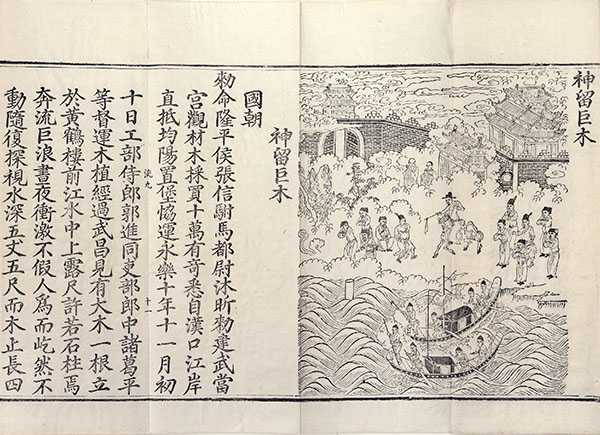 神留巨木
神留巨木
國朝
勑命隆平侯張信駙馬都尉沐昕勑建武當
宮觀材木採買十萬有奇悉自漢口江岸
直抵均陽置堡恊運永樂十年十一月初
流九
十一
十日工部侍郎郭進同吏部郎中諸葛平
等督運木植經過武昌見有大木一根立
於黃鶴樓前江水中上露尺許若石柱焉
奔流巨浪晝夜衝激不假人為而屹然不
動隨復探視水深五丈五尺而木止長四